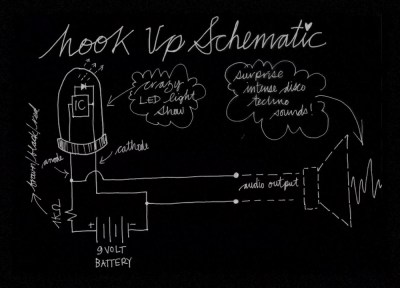 hook Up Schematic
crazy
LED light
show
surprise
intense disco
techno
sounds!
IC
anode
cathode
brown/black/red
1KΩ
+
-
9 VOLT
BATTERY
audio output